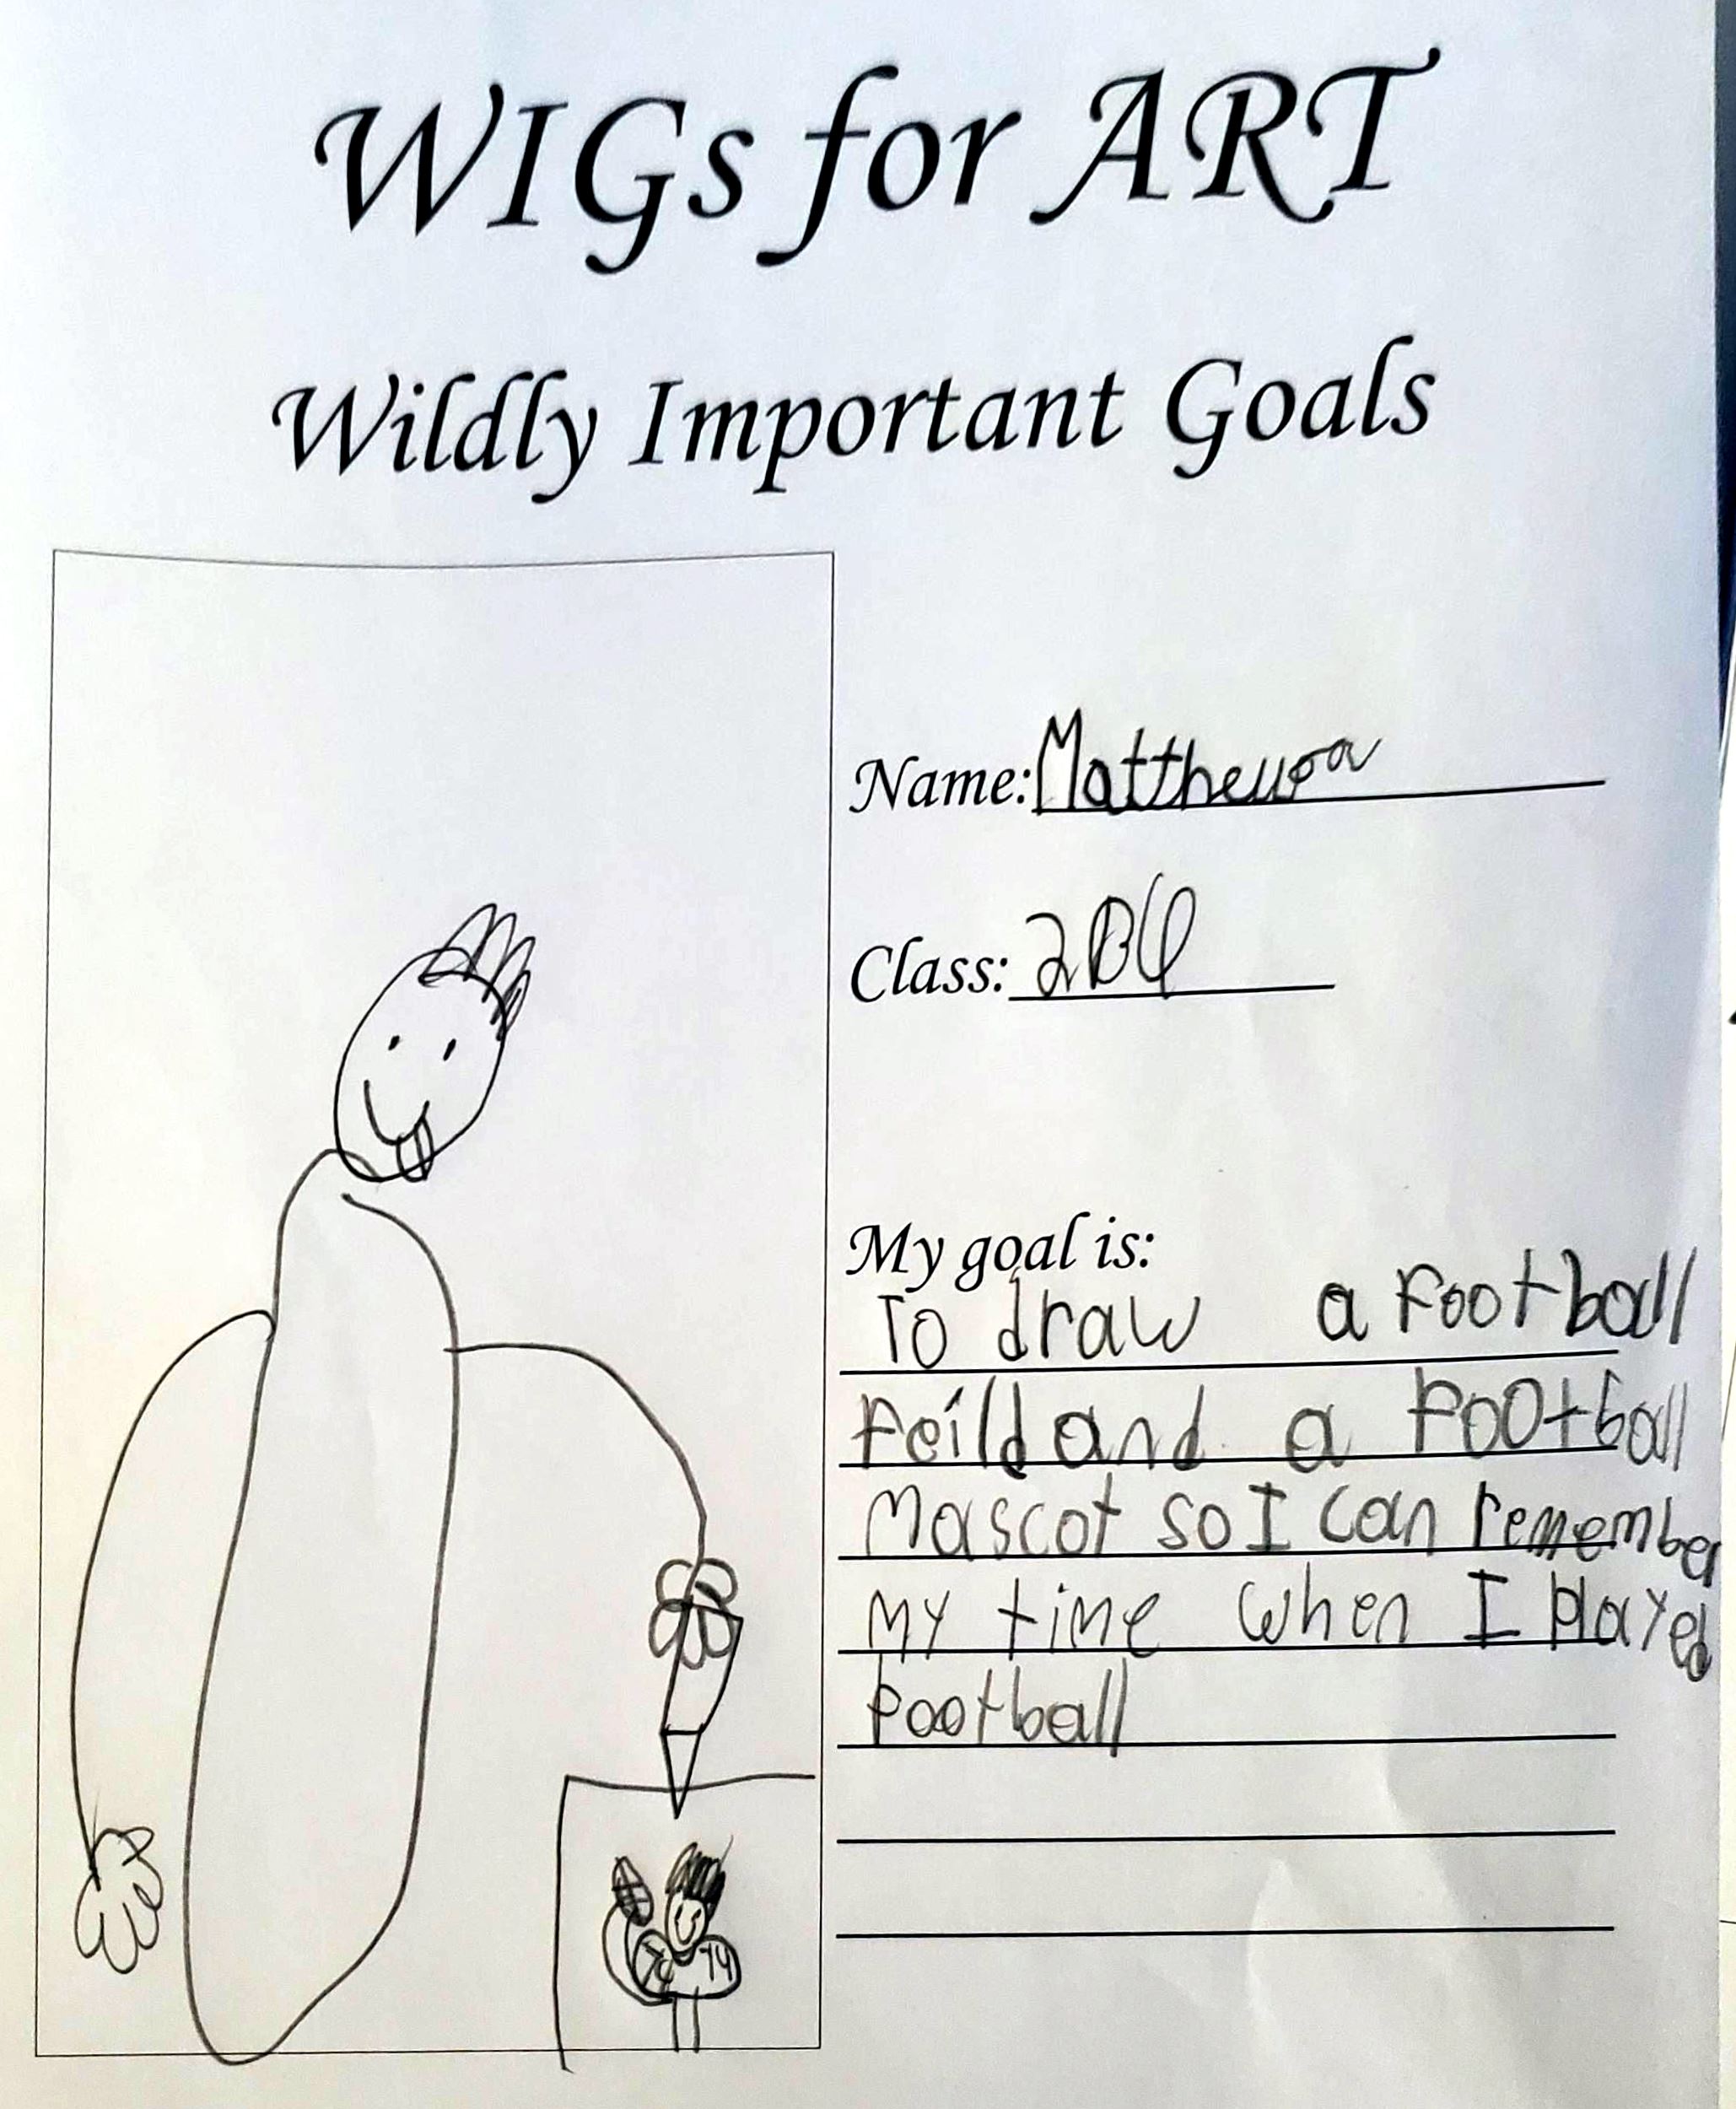 WIGs for ART
Wildly Important Goals
Name: Matthew
Class:
My goal is:
To draw a Football
Feild and a Football
Mascot so I can remember
my time when I played
Football
74